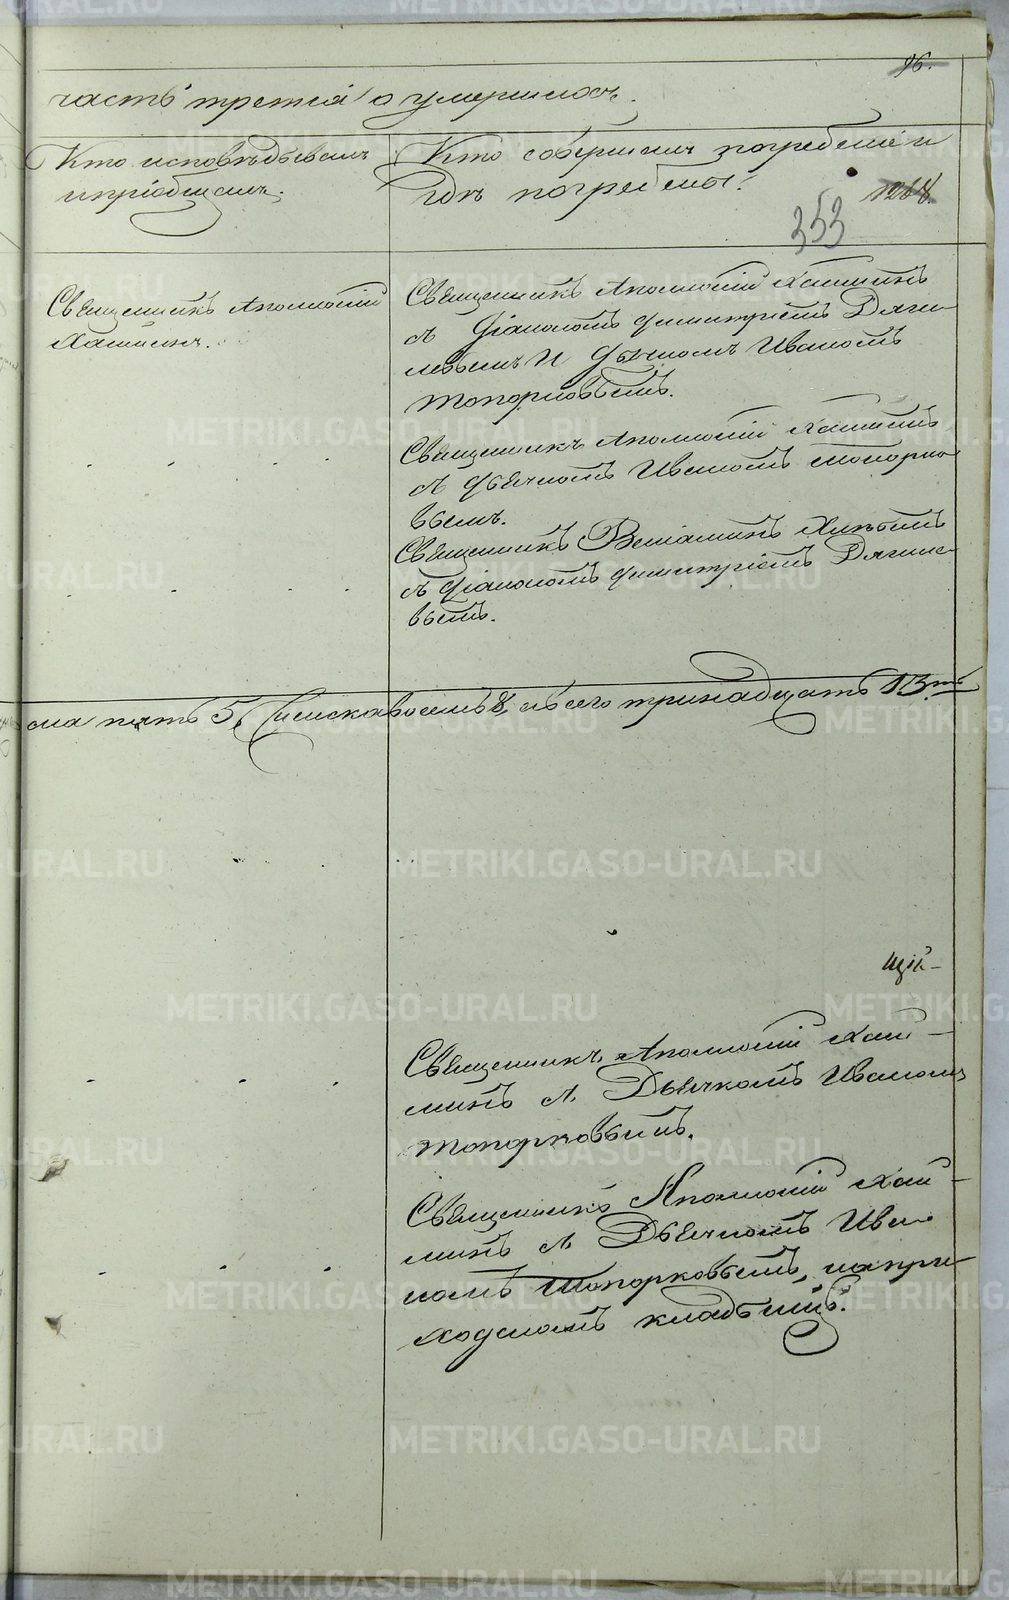 96.
часть третія о умершихъ.
Кто исповѣдывалъ
и пріобщалъ.
Кто совершалъ погребеніе и
гдѣ погребены.
1268.
353
Священникъ Аполлоній
Хашинъ.
Священникъ Аполлоній Хашинъ
съ Діакономъ Димитріемъ Дяги
левымъ и Дьячкомъ Иваномъ
Топорковымъ.
Священникъ Аполлоній Хашинъ
съ Дьячкомъ Иваномъ Топорко
вымъ.
Священникъ Веніаминъ
съ Діакономъ Димитріемъ Дягиле
вымъ.
пять 5, женска восемь 8, всего тринадцать 13ть
щій
Священникъ Аполлоній Ха
шинъ съ Дьячкомъ Иваномъ
Топорковымъ.
Священникъ Аполлоній Ха
шинъ съ Дьячкомъ Ива
номъ Топорковымъ, на при
ходскомъ кладбищѣ.
METRIKI.GASO-URAL.RU